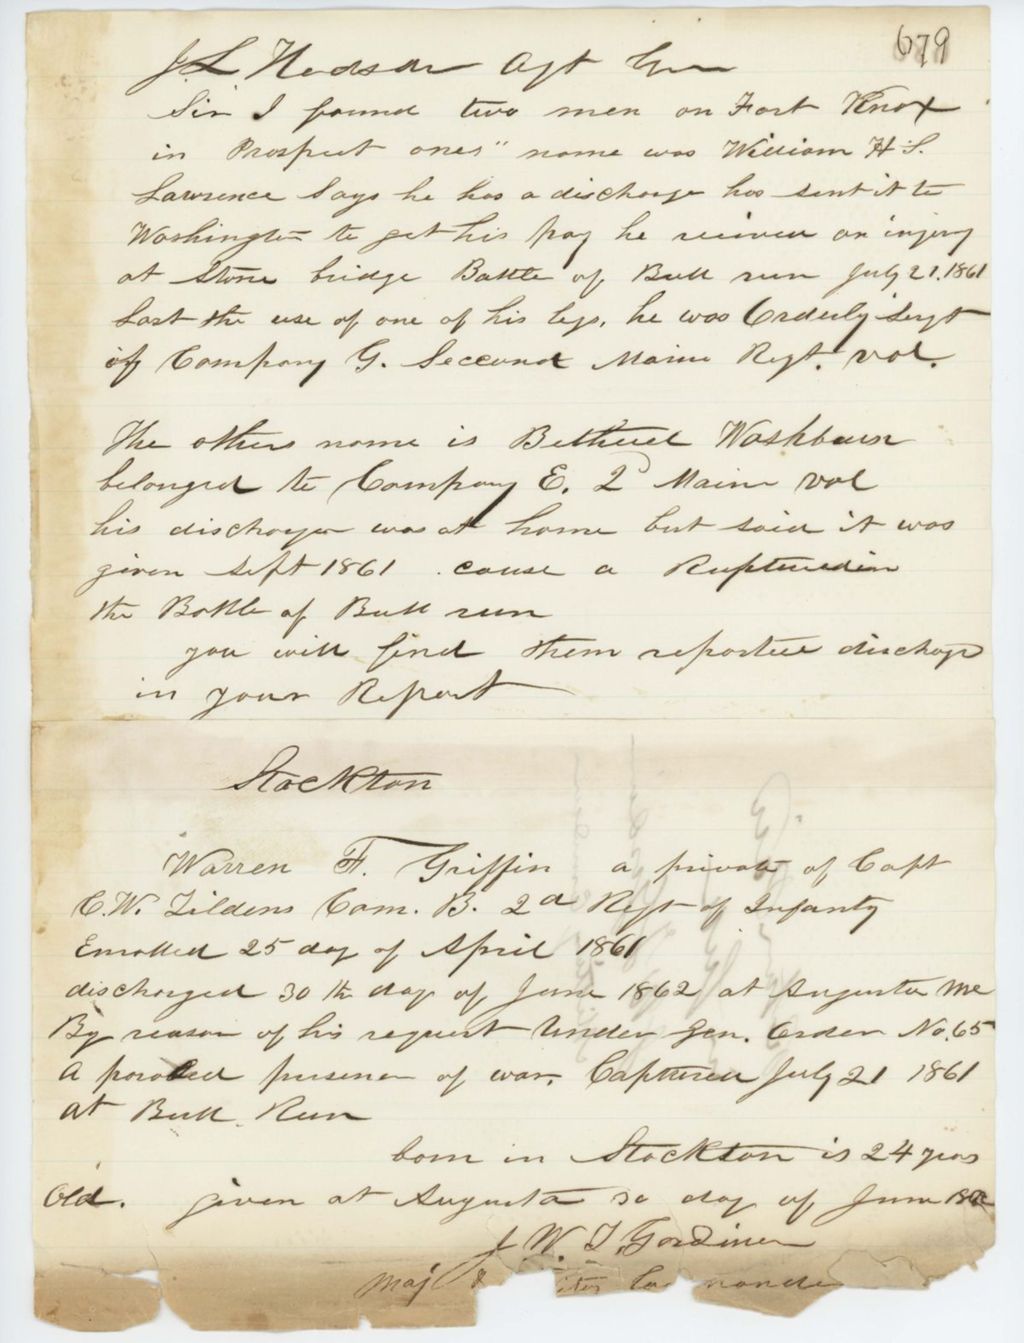 679
J. L. Hodsdon Agt Gen
Sir I found two men on Fort Knox
in Prospect ones" name was William H. S.
Lawrence Says he has a discharge has sent it to
Washington to get his pay he recived an injery
at Stone bridge Battle of Bull run July 21, 1861
Lost the use of one of his legs, he was Orderly Sergt
of Company G. Seccond Maine Regt. vol.
The others name is Bethuel Washburn
belonged to Company E. 2d Maine vol
his discharge was at home but said it was
given Sept 1861 . cause a Rupture in
the Battle of Bull run
you will find them reported discharge
in your Report
Stockton
Warren F. Griffin a private of Capt
C. W. Tildens Com. B. 2d Regt of Infanty
Enrolled 25 day of April 1861
discharged 30th day of June 1862 at Augusta Me
By reason of his request Under Gen. Order No. 65
A paroled prisener of war. Captured July 21 1861
at Bull Run
born in Stockton is 24 years
Old. given at Augusta 30 day of June 1862
J. W. T. Gardiner
Maj &